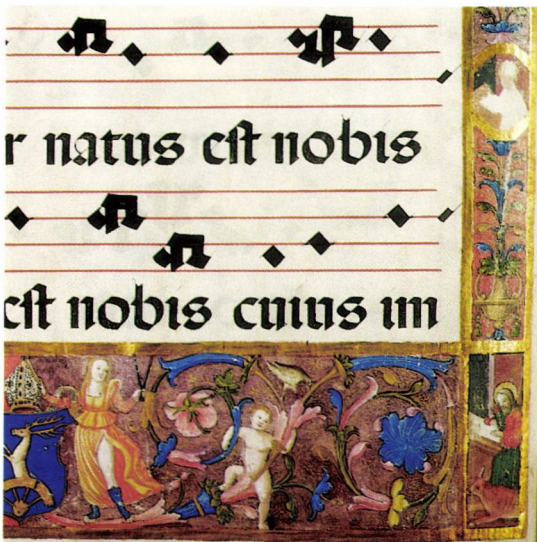 r natus est nobis
est nobis cuius im